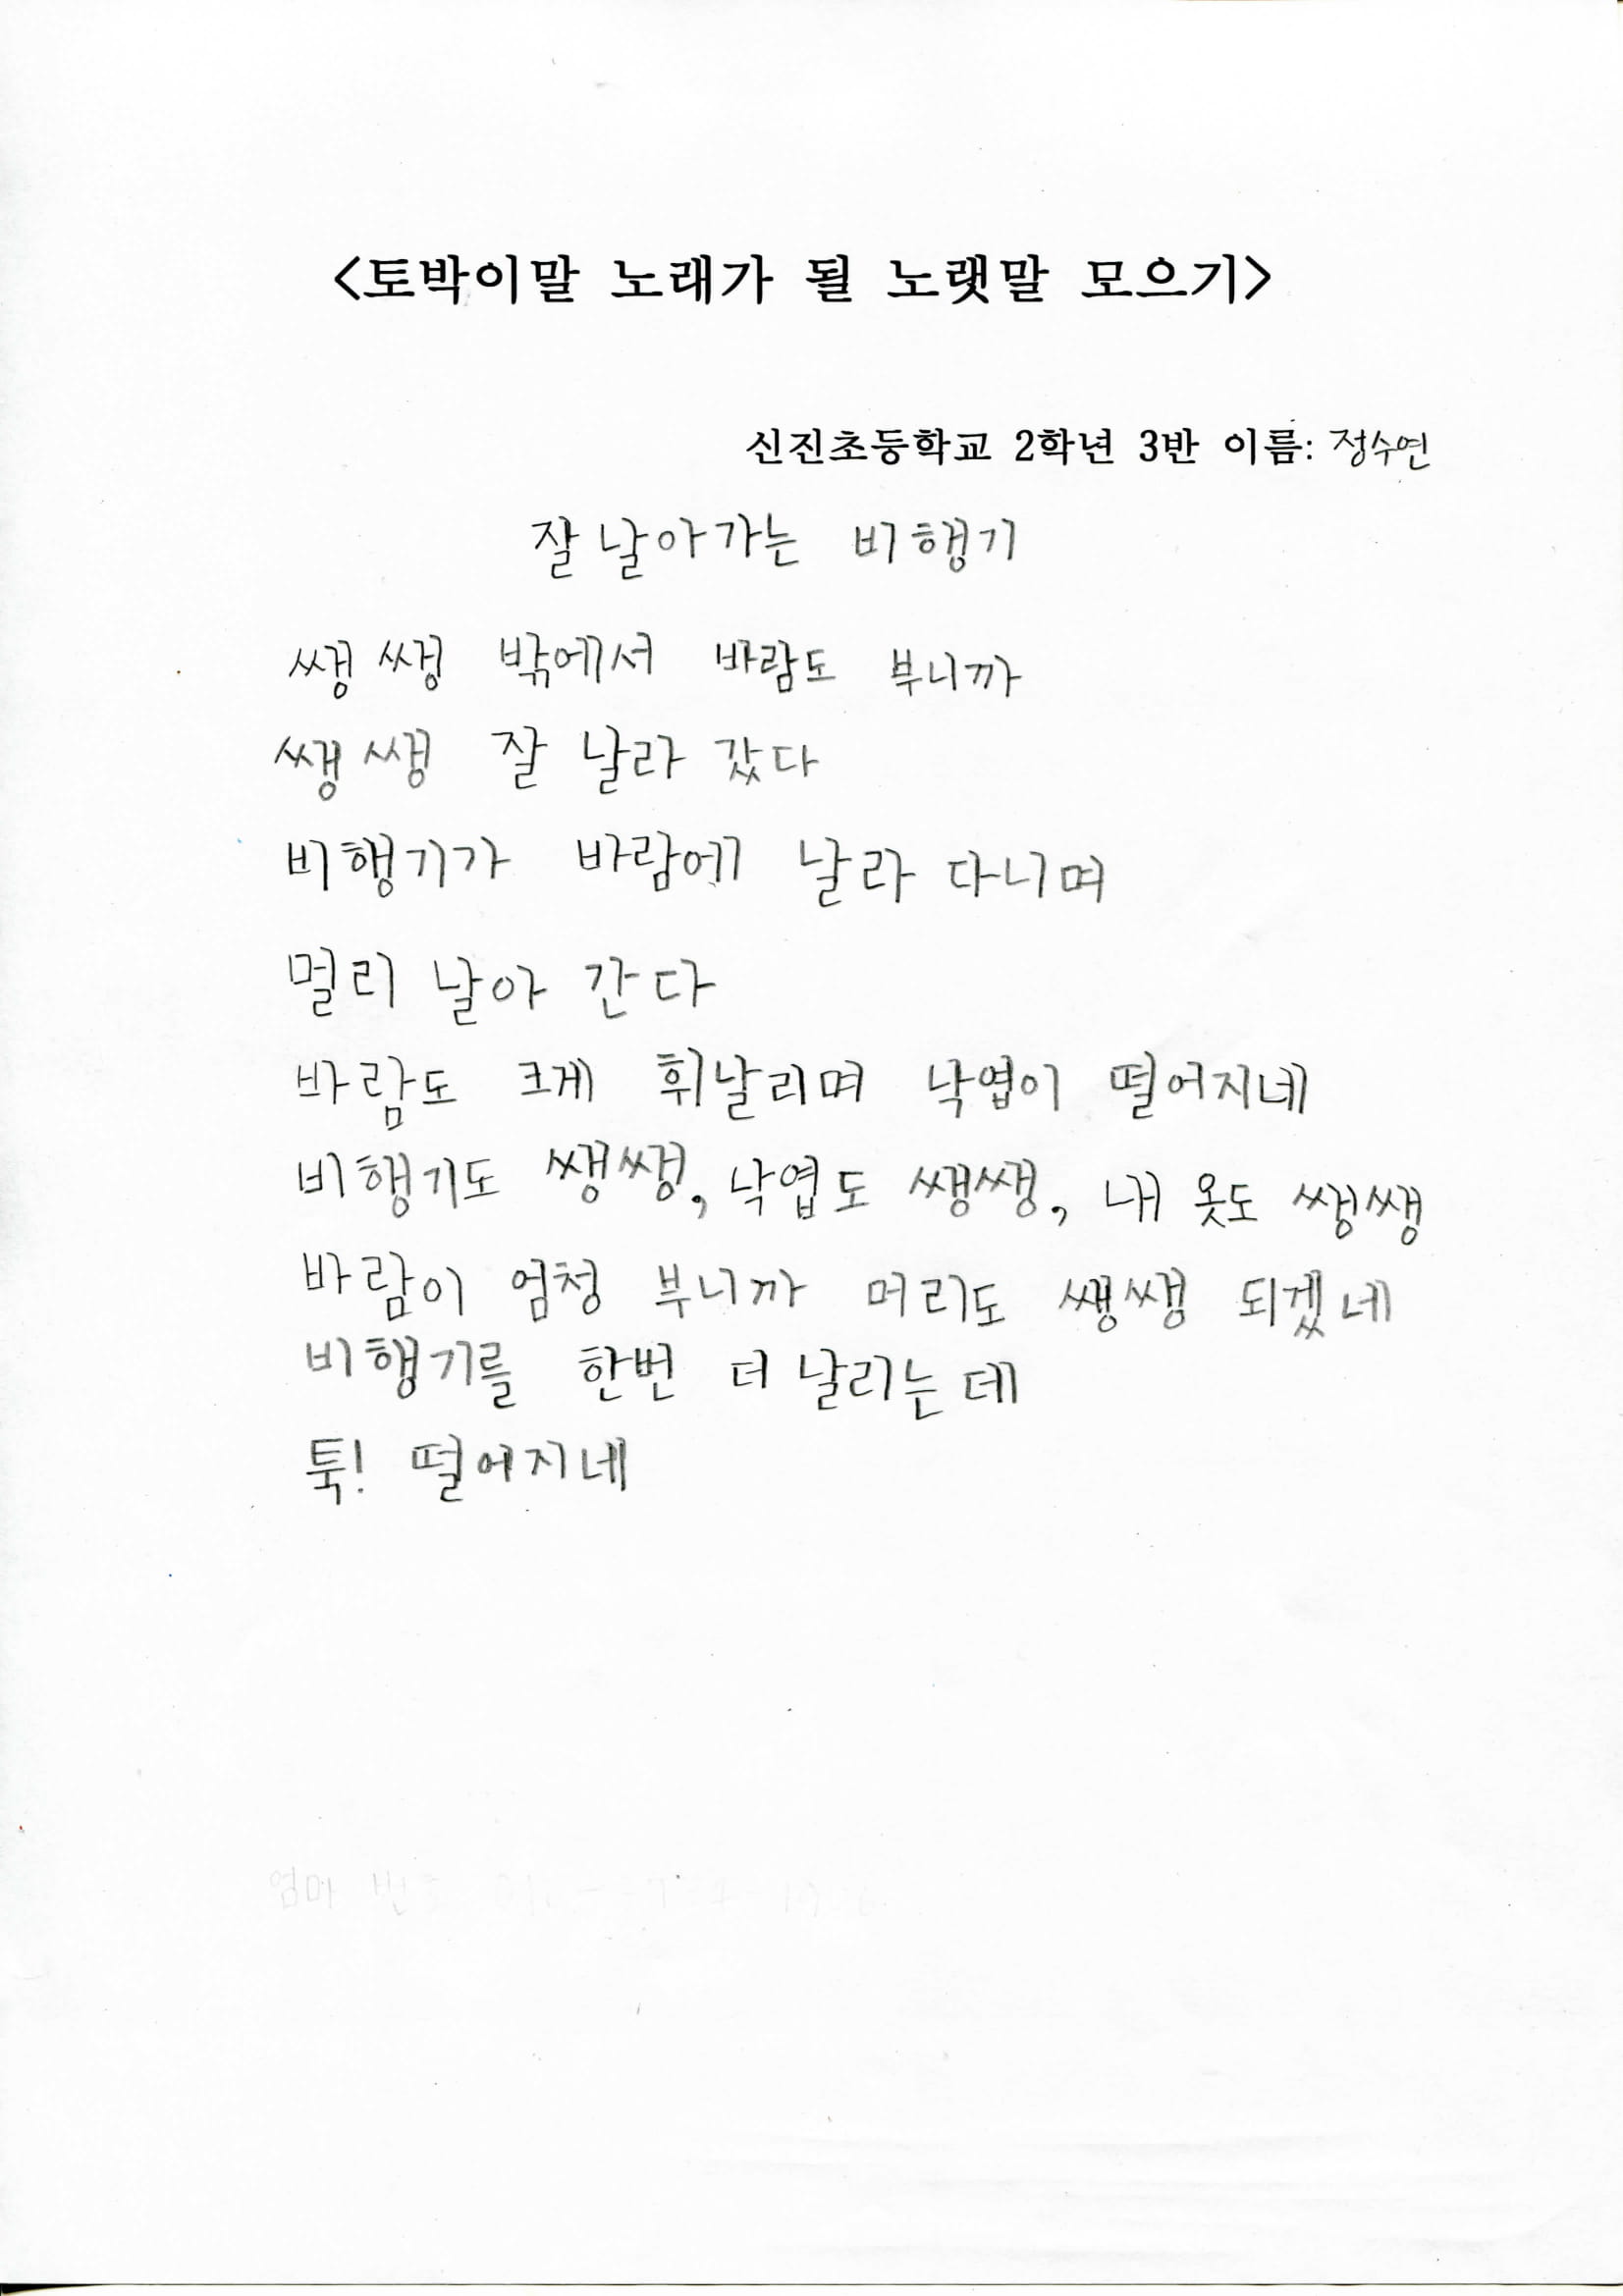 <토박이말 노래가 될 노랫말 모으기>
신진초등학교 2학년 3반 이름: 정수연
잘 날아가는 비행기
쌩쌩 밖에서 바람도 부니까
쌩쌩 잘 날라 갔다
비행기가 바람에 날라 다니며
멀리 날아 간다
바람도 크게 휘날리며 낙엽이 떨어지네
비행기도 쌩쌩, 낙엽도 쌩쌩, 내 옷도 쌩쌩
바람이 엄청 부니까 머리도 쌩쌩 되겠네
비행기를 한번 더 날리는데
툭! 떨어지네
엄마